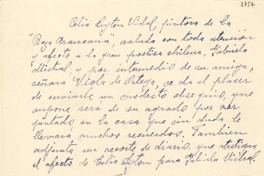 2754
Celia Leyton Vidal, pintora de la
"Raza Araucana", saluda con toda atención
y afecto a la gran poetisa chilena, Gabriela
Mistral, y por intermedio de su amiga,
señora Violeta de Ortega, se da el placer
de enviarle un modesto obsequio, que
supone será de su agrado por ser
pintado en la casa que sin duda le
llevará muchos recuerdos. También
adjunta un recorte de diario, que atestigua
el afecto de Celia Leyton para Gabriela Mistral.